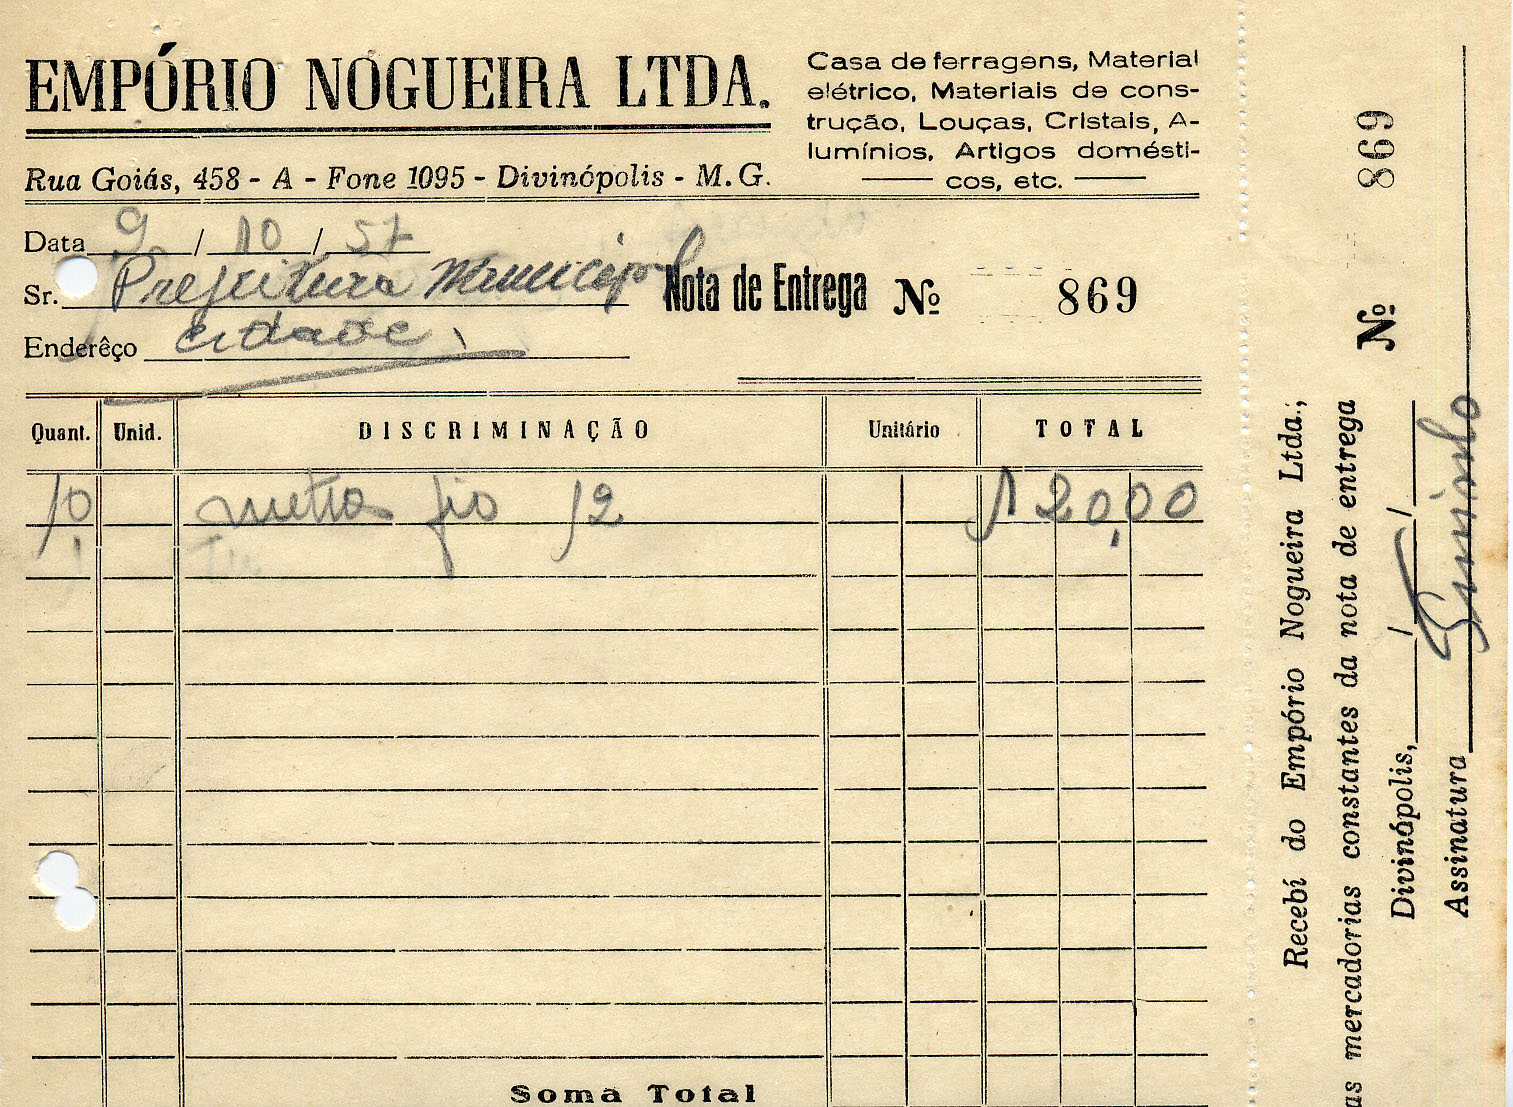 EMPÓRIO NOGUEIRA LTDA.
Casa de ferragens, Material
elétrico, Materiais de cons-
trução, Louças, Cristais, A-
lumínios, Artigos domésti-
cos, etc.
Rua Goiás, 458 - A - Fone 1095 - Divinópolis - M. G.
Data 9 / 10 / 57
Sr. Prefeitura Municipal
Nota de Entrega Nº 869
Enderêço cidade
Quant. Unid. DISCRIMINAÇÃO Unitário TOTAL
10 metros fio 12 120,00
Soma Total
Recebí do Empório Nogueira Ltda.,
as mercadorias constantes da nota de entrega Nº 869
Divinópolis, / /
Assinatura